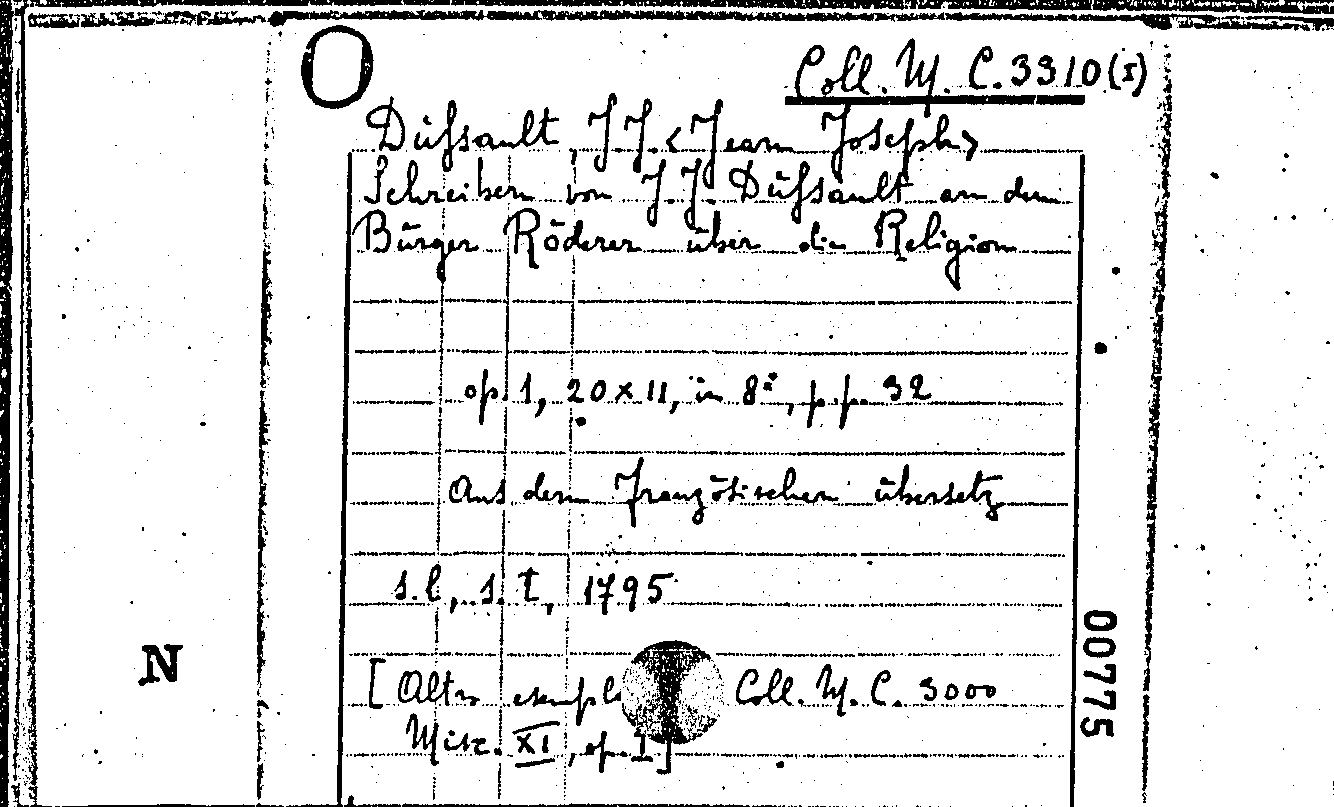 O
Coll. M. C. 3310 (I)
Düfsault, J.J. <Jean Joseph>
Schreiben von J.J. Düfsault an den
Bürger Röderer über die Religion
op. 1, 20 x 11, in 8º, p.p. 32
Aus dem Französischen übersetz
s.l., s.t., 1795
N
00775
[Altro Coll. M. C. 3000
Misc. XI, op. I]